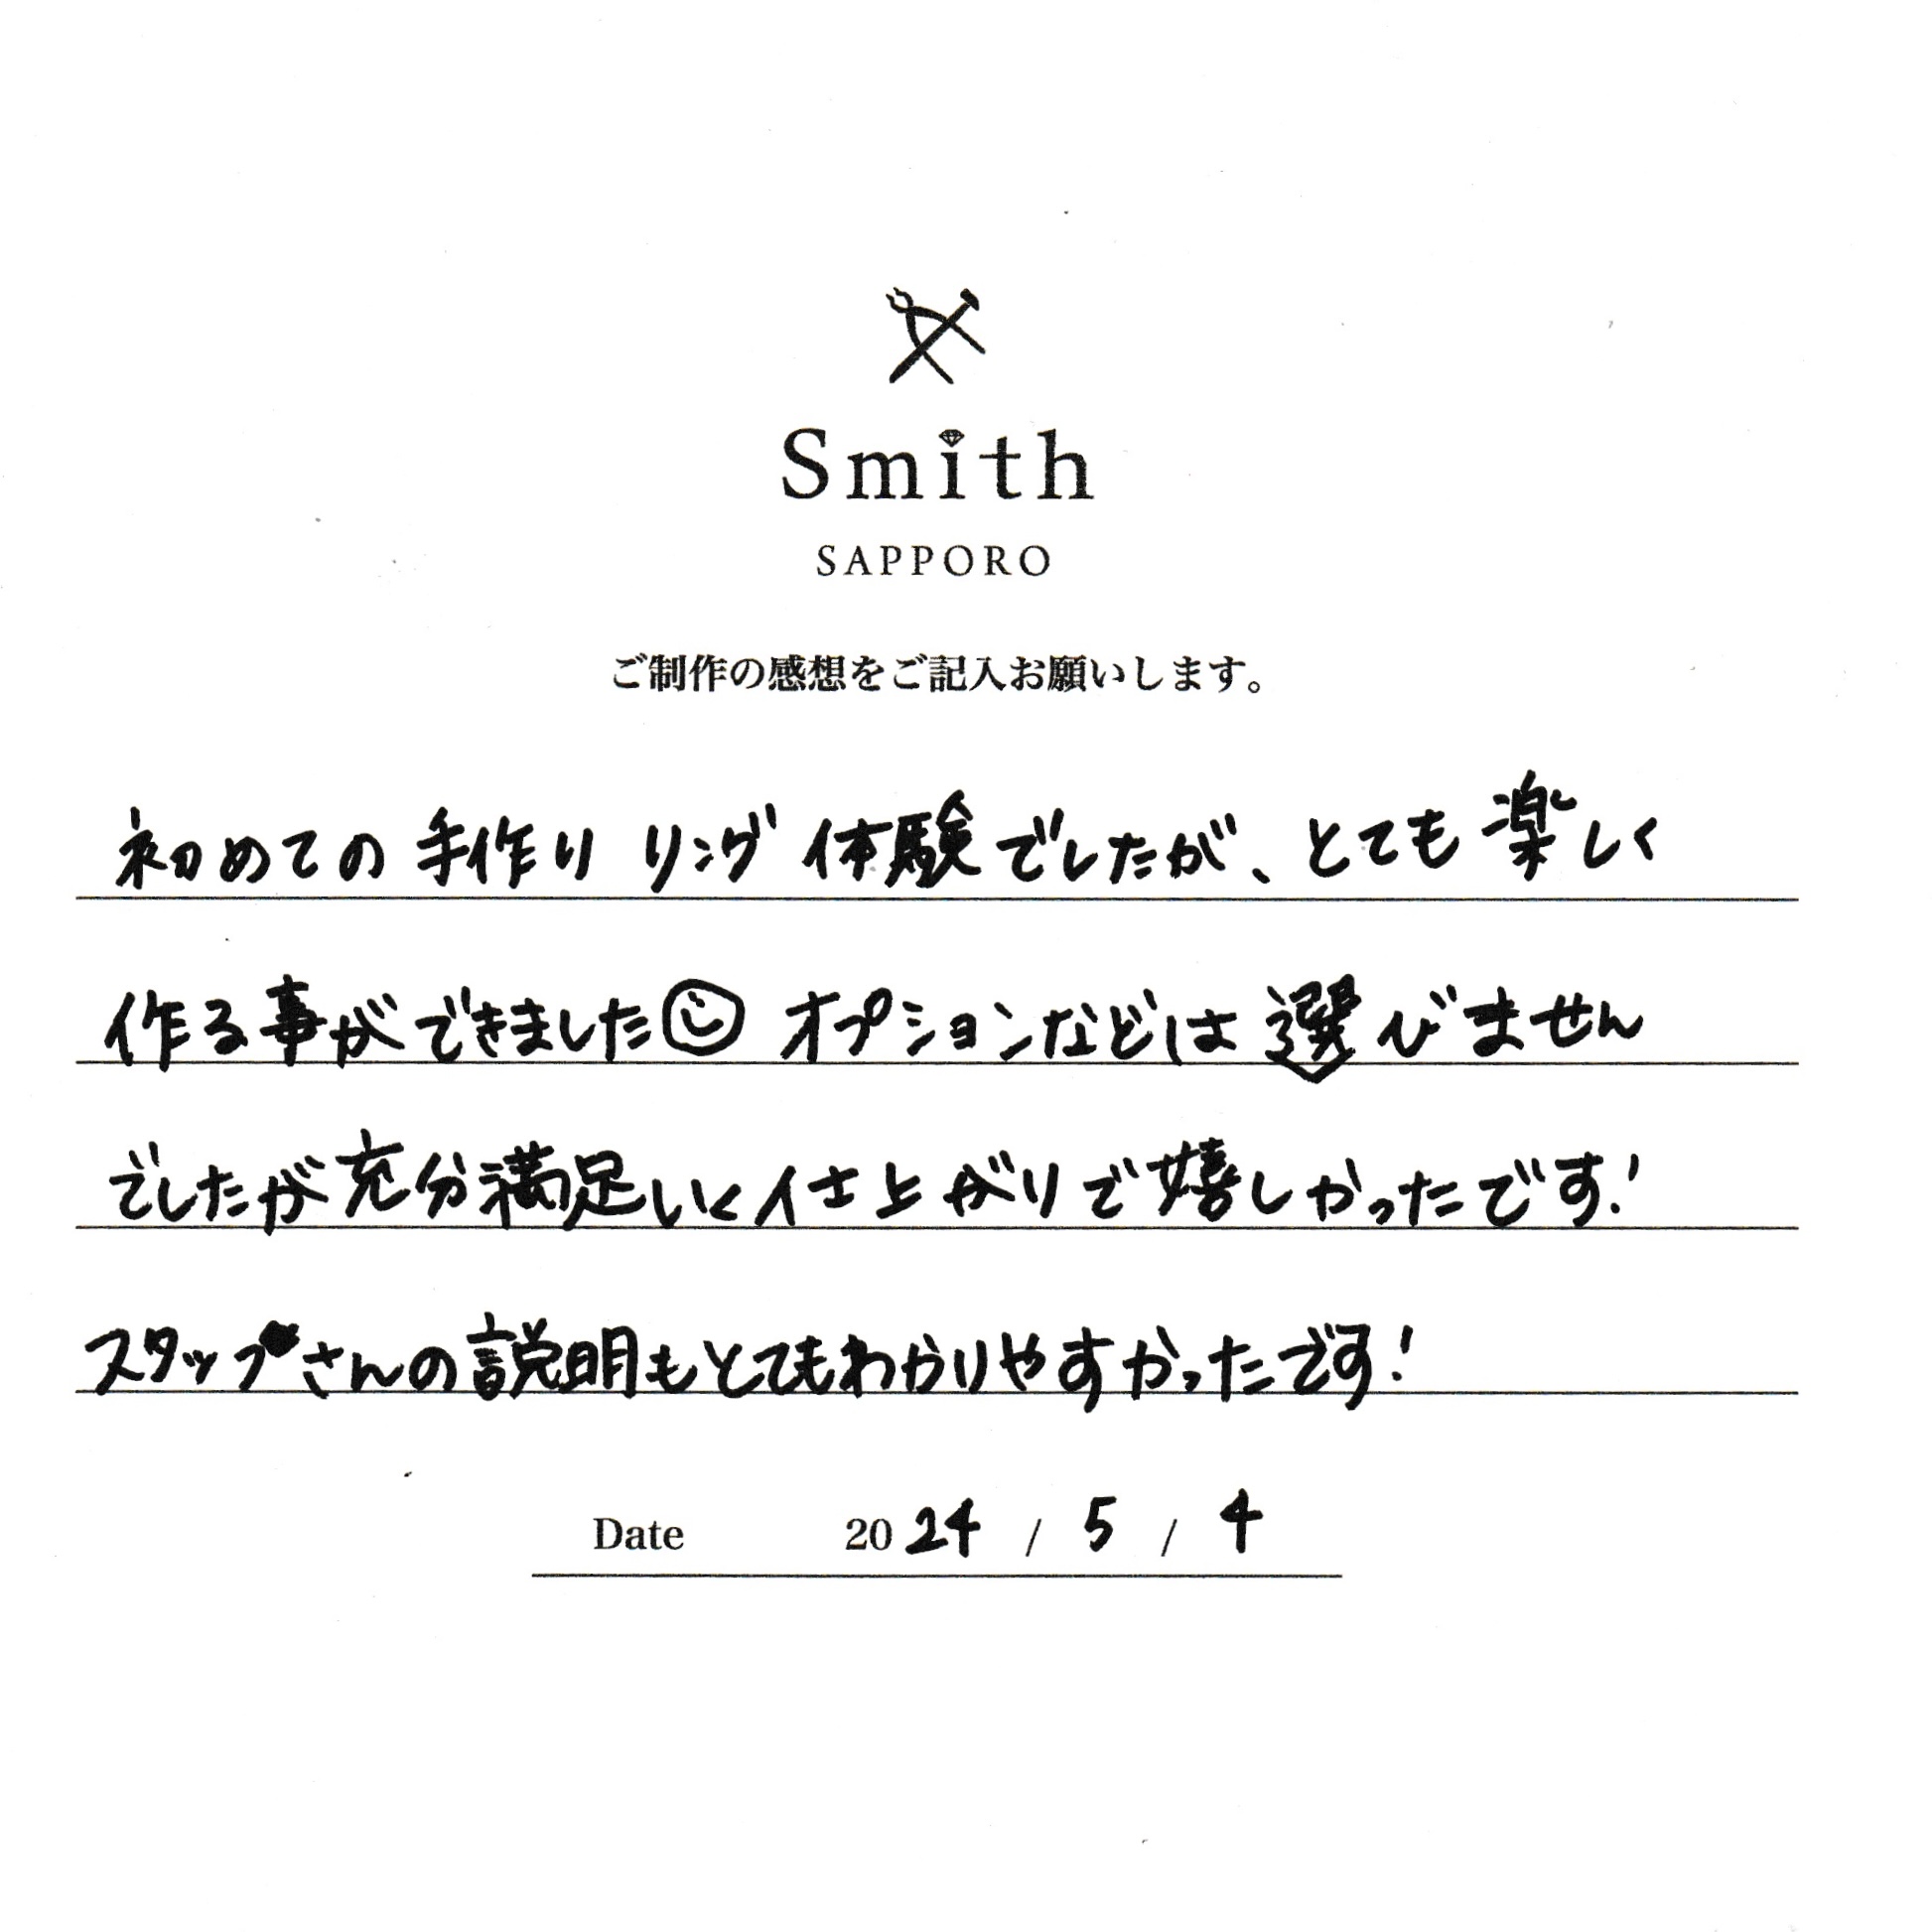 Smith
SAPPORO
ご制作の感想をご記入お願いします。
初めての手作りリング体験でしたが、とても楽しく
作る事ができました☺ オプションなどは選びません
でしたが充分満足いく仕上がりで嬉しかったです!
スタッフさんの説明もとてもわかりやすかったです!
Date 2024 / 5 / 4